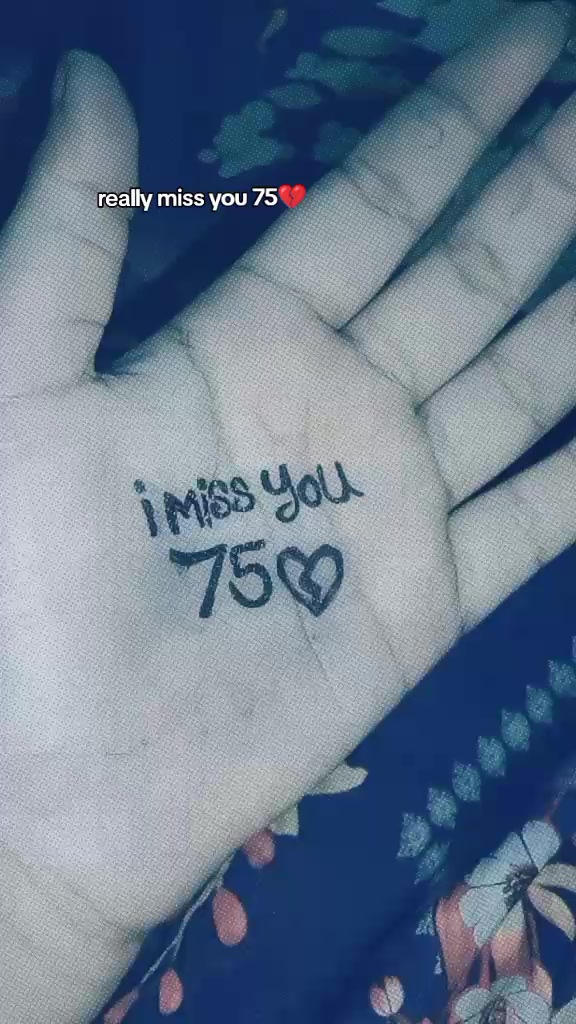 really miss you 75💔
i miss you
75💔